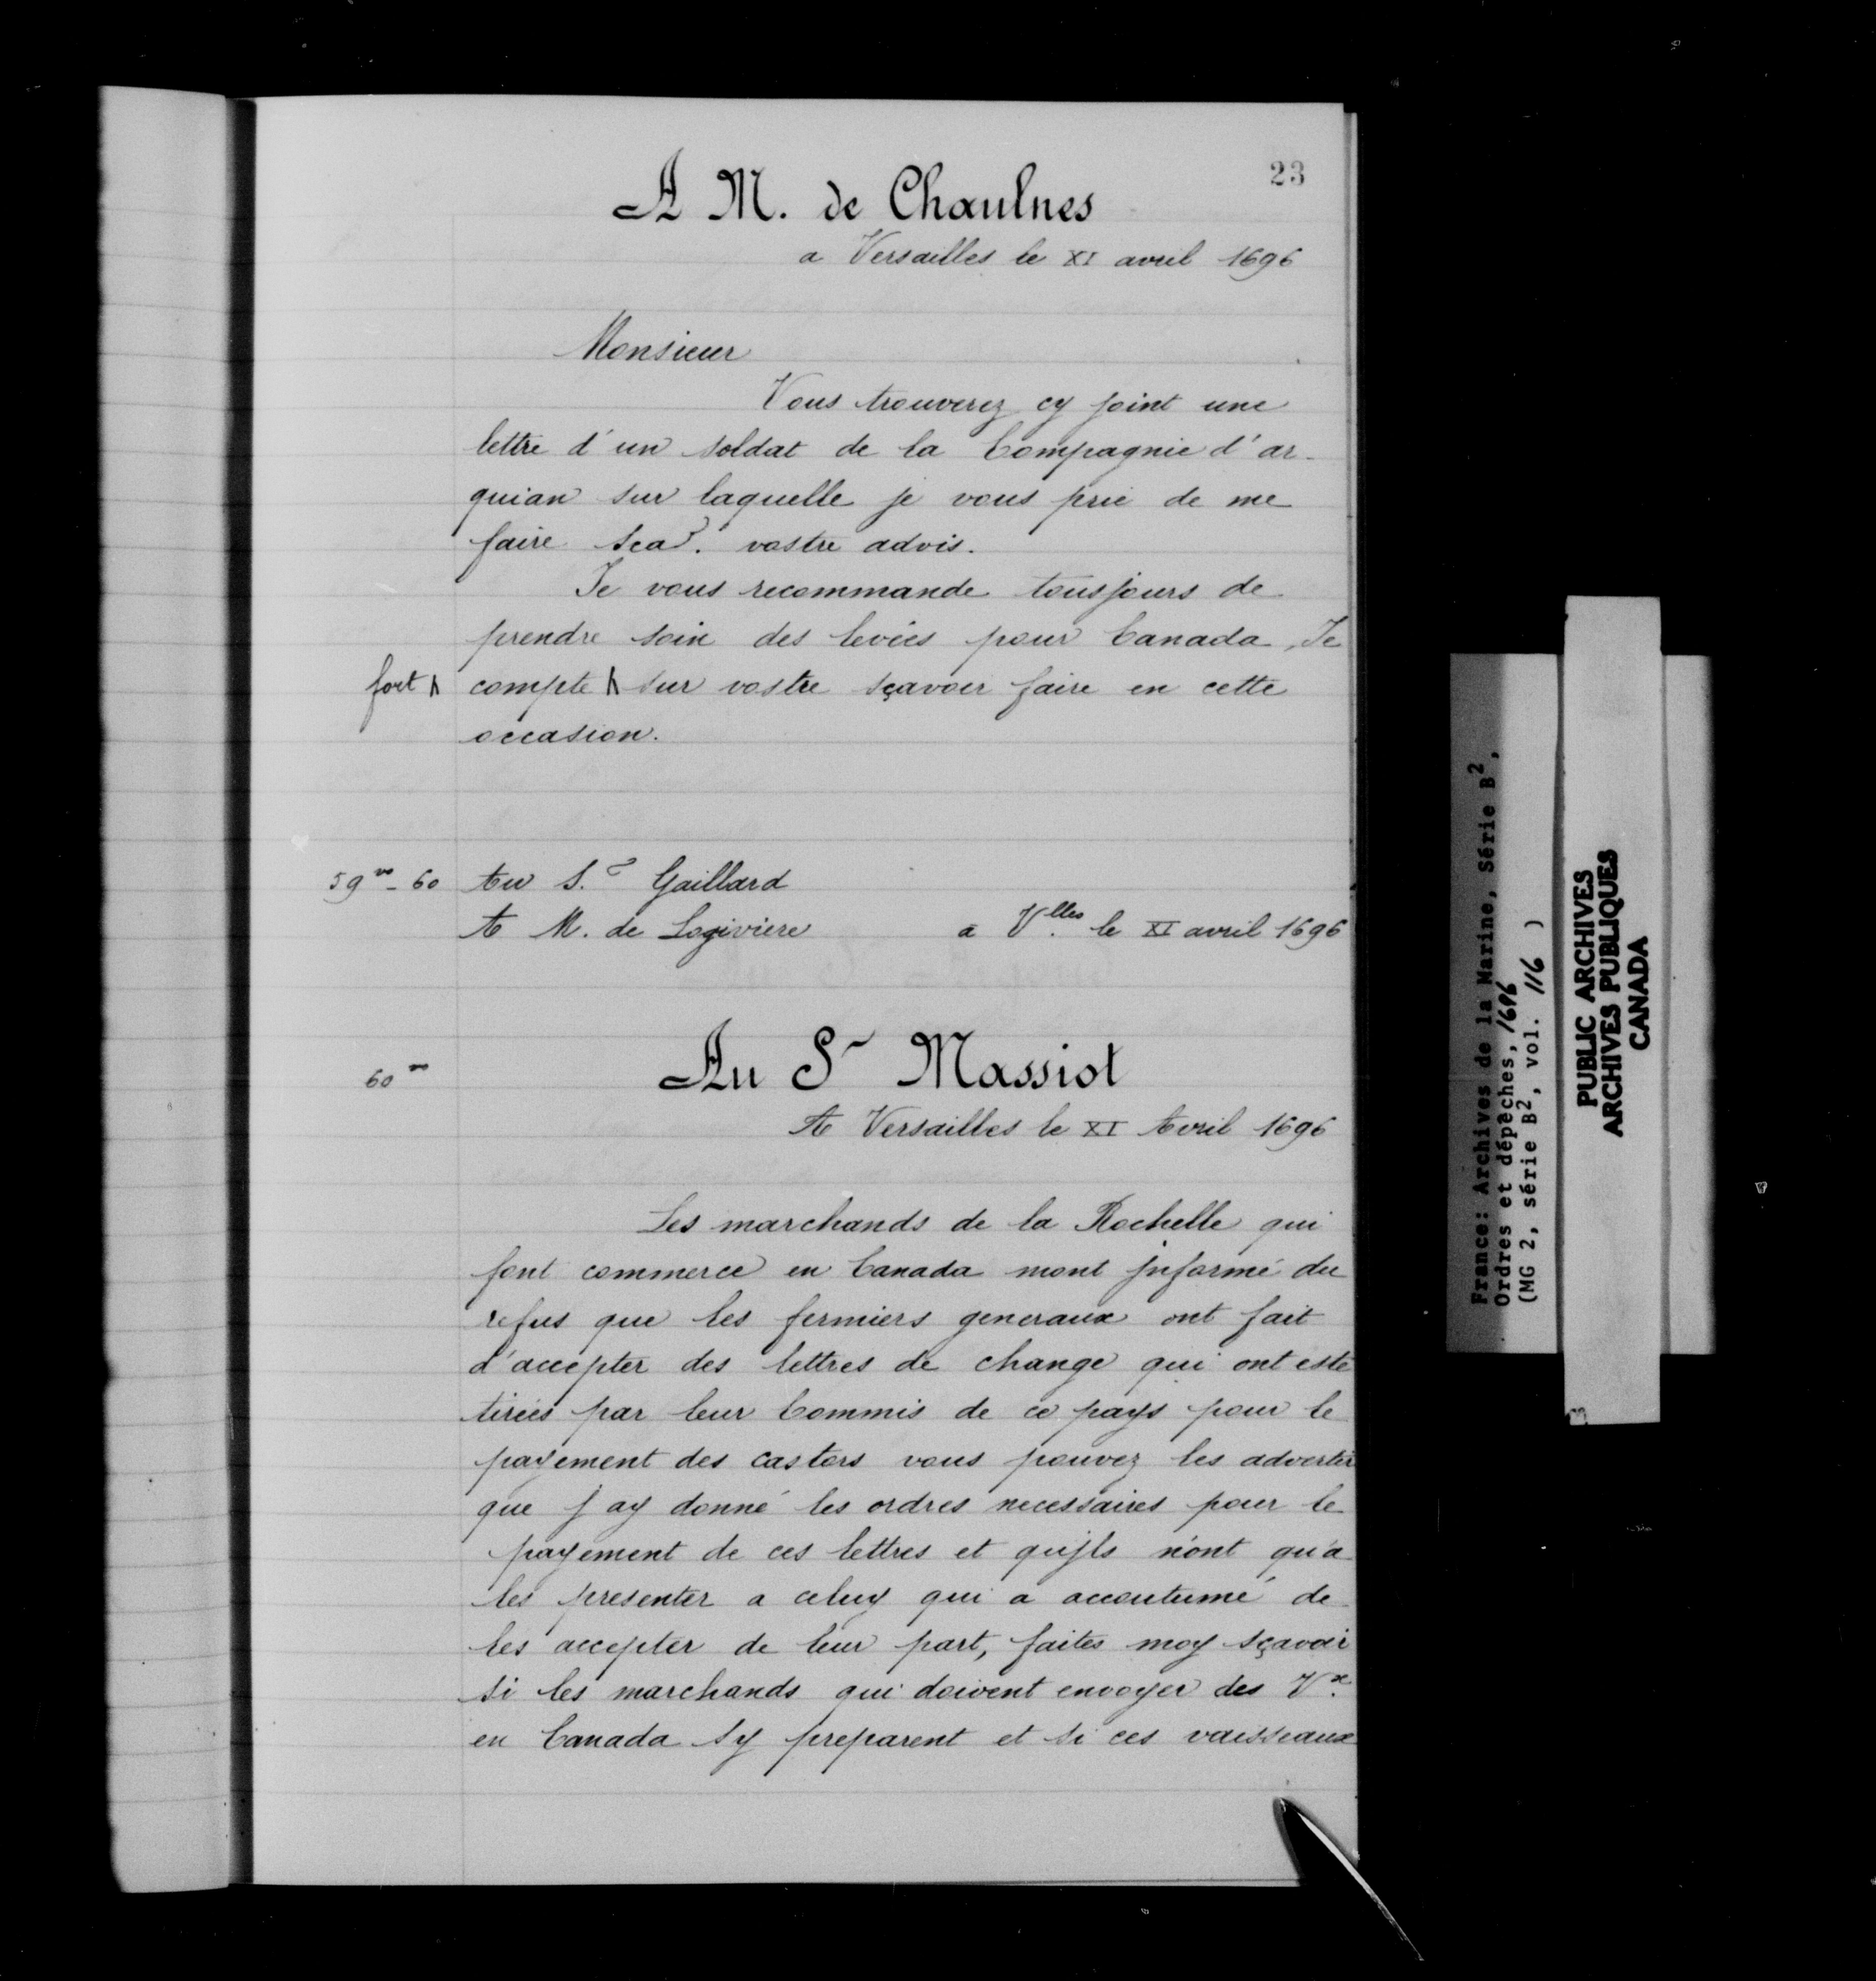 23
A M. de Chaulnes
a Versailles le XI avril 1696
Monsieur
Vous trouverez cy joint une
lettre d'un soldat de la Compagnie d'ar-
quian sur laquelle je vous prie de me
faire sca.r vostre advis.
Je vous recommande tousjours de
prendre soin des levées pour Canada, Je
fort compte sur vostre sçavoir faire en cette
occasion.
59 vo - 60 Au S.r Gaillard
A M. de Logiviere a V.lles le XI avril 1696
60 vo Au Sr Massiot
A Versailles le XI Avril 1696
Les marchands de la Rochelle qui
font commerce en Canada mont jnformé du
refus que les fermiers generaux ont fait
d'accepter des lettres de change qui ont esté
tirées par leur Commis de ce pays pour le
payement des castors vous pouvez les advertir
que j ay donné les ordres necessaires pour le
payement de ces lettres et qu'jls n'ont qu'a
les presenter a celuy qui a accoutumé de
les accepter de leur part, faites moy sçavoir
si les marchands qui doivent envoyer des V.x
en Canada sy preparent et si ces vaisseaux
France: Archives de la Marine, Série B2,
Ordres et dépêches, 1696
(MG 2, série B2, vol. 116 )
PUBLIC ARCHIVES
ARCHIVES PUBLIQUES
CANADA